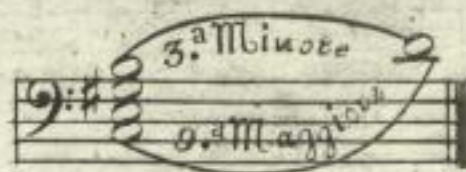 3.ª Minore
9.ª Maggiore